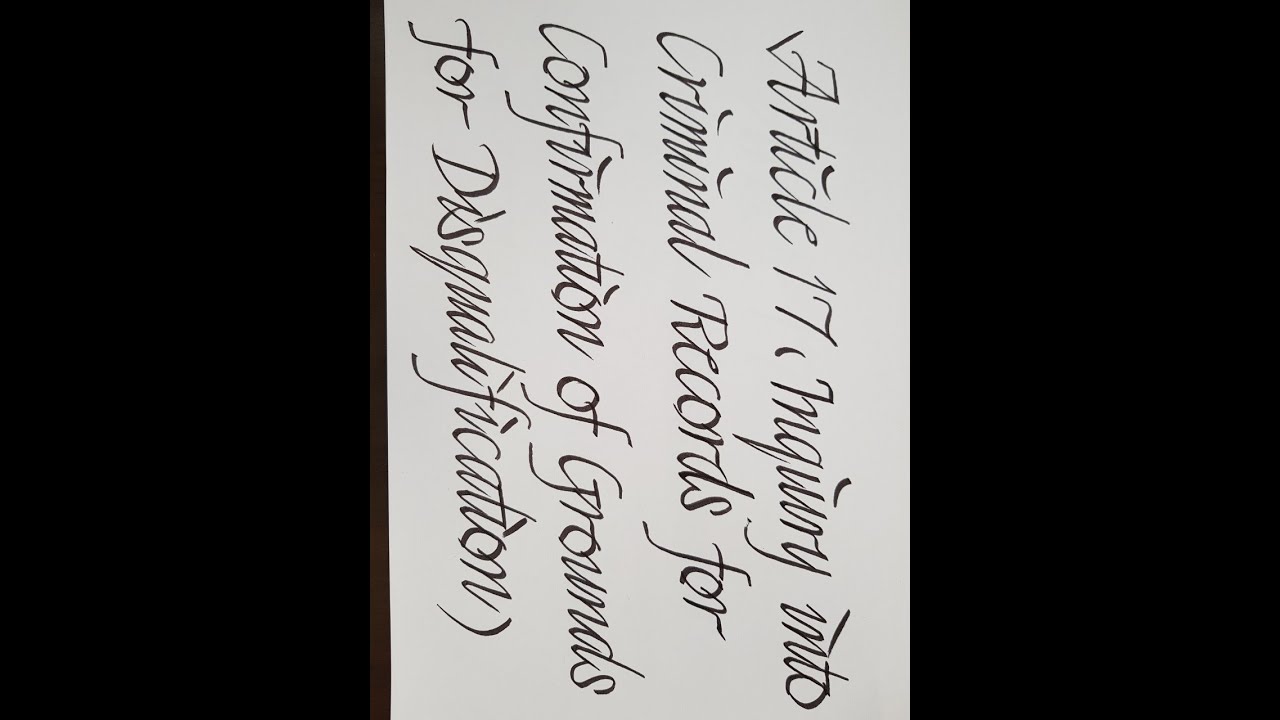 Article 17 (Inquiry into
Criminal Records for
Confirmation of Grounds
for Disqualification)